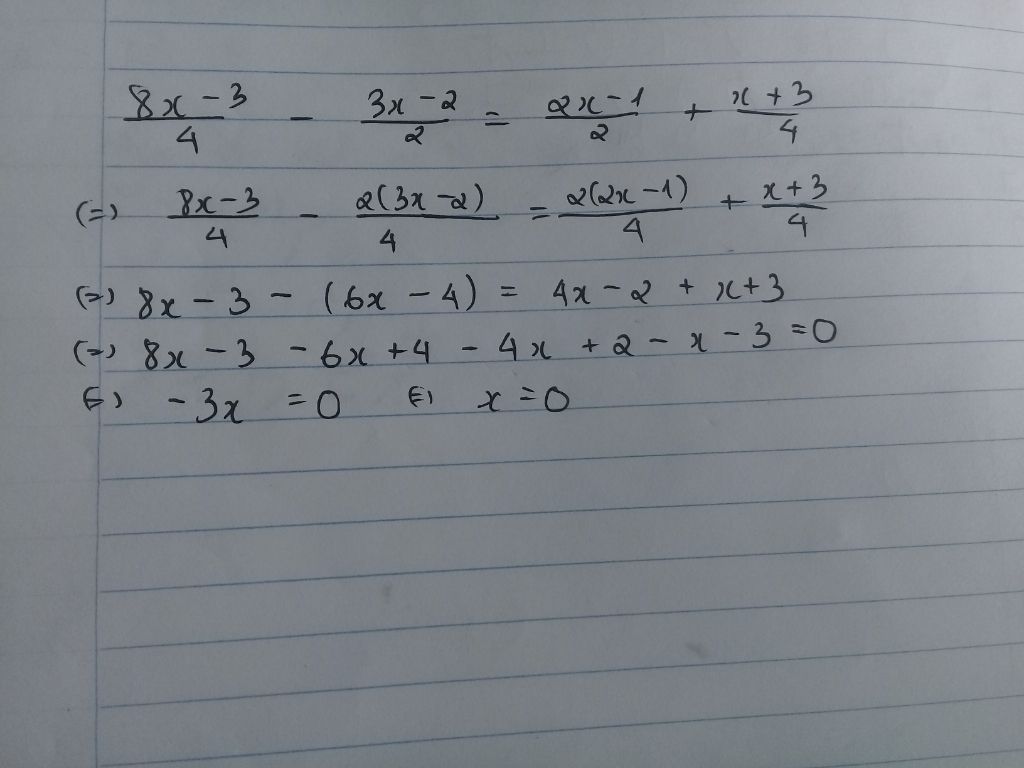 (8x - 3)/4 - (3x - 2)/2 = (2x - 1)/2 + (x + 3)/4
(=) (8x - 3)/4 - 2(3x - 2)/4 = 2(2x - 1)/4 + (x + 3)/4
(=) 8x - 3 - (6x - 4) = 4x - 2 + x + 3
(=) 8x - 3 - 6x + 4 - 4x + 2 - x - 3 = 0
(=) -3x = 0 (=) x = 0